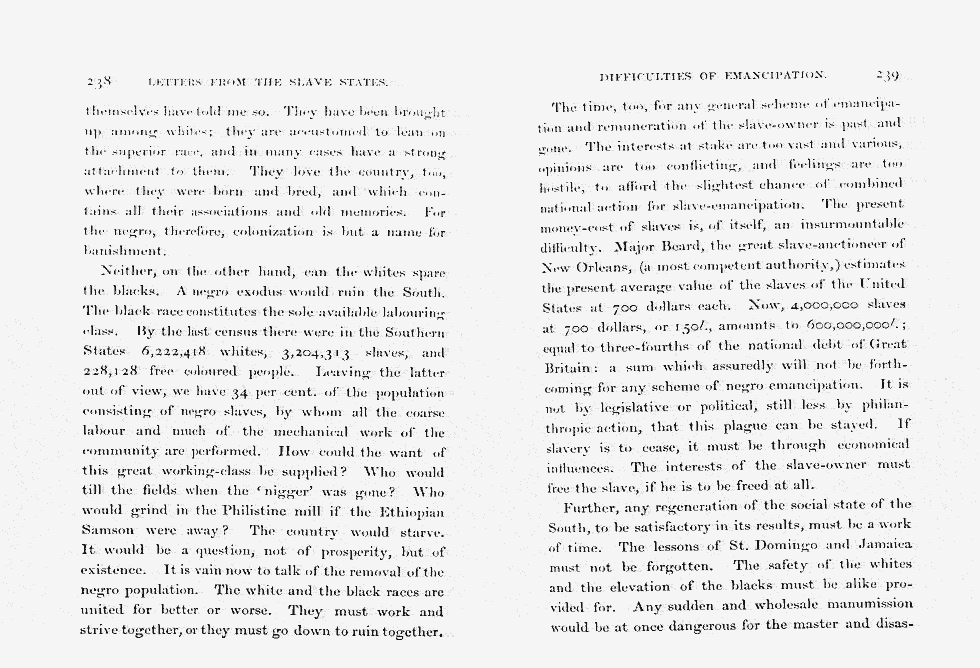 238 LETTERS FROM THE SLAVE STATES.
themselves have told me so. They have been brought
up among whites; they are accustomed to lean on
the superior race, and in many cases have a strong
attachment to them. They love the country, too,
where they were born and bred, and which con-
tains all their associations and old memories. For
the negro, therefore, colonization is but a name for
banishment.
Neither, on the other hand, can the whites spare
the blacks. A negro exodus would ruin the South.
The black race constitutes the sole available labouring
class. By the last census there were in the Southern
States 6,222,418 whites, 3,204,313 slaves, and
228,128 free coloured people. Leaving the latter
out of view, we have 34 per cent. of the population
consisting of negro slaves, by whom all the coarse
labour and much of the mechanical work of the
community are performed. How could the want of
this great working-class be supplied? Who would
till the fields when the ‘nigger’ was gone? Who
would grind in the Philistine mill if the Ethiopian
Samson were away? The country would starve.
It would be a question, not of prosperity, but of
existence. It is vain now to talk of the removal of the
negro population. The white and the black races are
united for better or worse. They must work and
strive together, or they must go down to ruin together.
DIFFICULTIES OF EMANCIPATION. 239
The time, too, for any general scheme of emancipa-
tion and remuneration of the slave-owner is past and
gone. The interests at stake are too vast and various,
opinions are too conflicting, and feelings are too
hostile, to afford the slightest chance of combined
national action for slave-emancipation. The present
money-cost of slaves is, of itself, an insurmountable
difficulty. Major Beard, the great slave-auctioneer of
New Orleans, (a most competent authority,) estimates
the present average value of the slaves of the United
States at 700 dollars each. Now, 4,000,000 slaves
at 700 dollars, or 150l., amounts to 600,000,000l.;
equal to three-fourths of the national debt of Great
Britain: a sum which assuredly will not be forth-
coming for any scheme of negro emancipation. It is
not by legislative or political, still less by philan-
thropic action, that this plague can be stayed. If
slavery is to cease, it must be through economical
influences. The interests of the slave-owner must
free the slave, if he is to be freed at all.
Further, any regeneration of the social state of the
South, to be satisfactory in its results, must be a work
of time. The lessons of St. Domingo and Jamaica
must not be forgotten. The safety of the whites
and the elevation of the blacks must be alike pro-
vided for. Any sudden and wholesale manumission
would be at once dangerous for the master and disas-